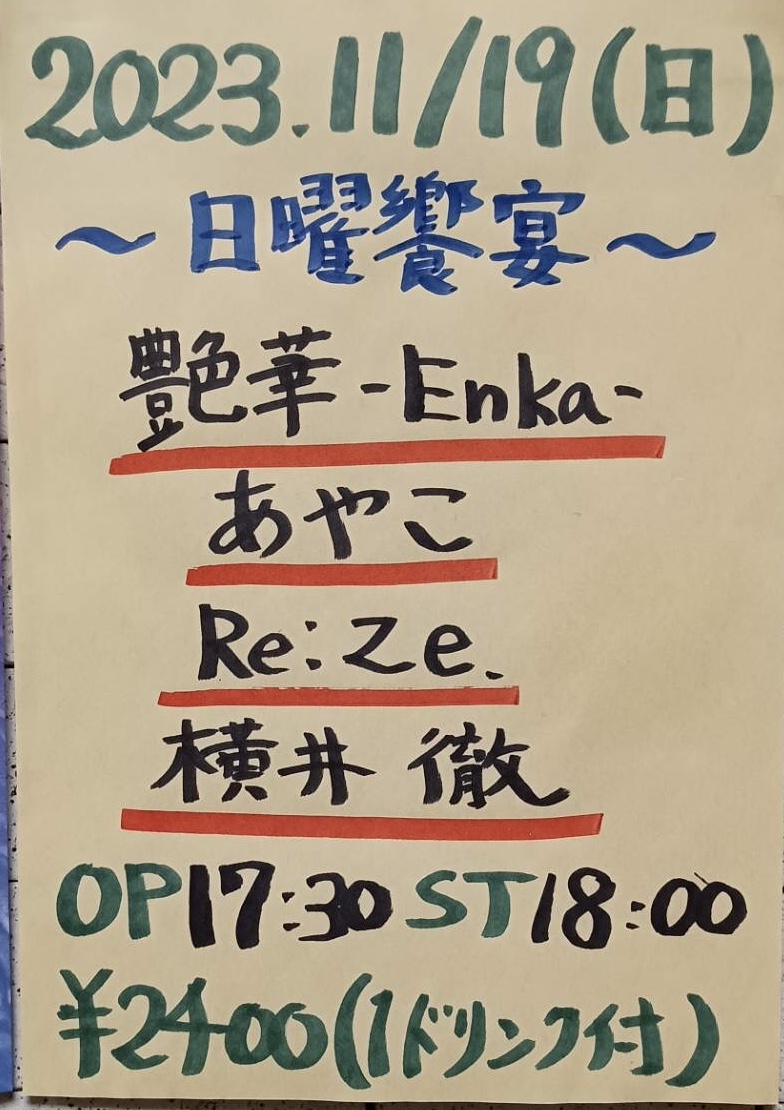 2023.11/19(日)
～日曜饗宴～
艶華-Enka-
あやこ
Re:Ze.
横井 徹
OP17:30 ST18:00
¥2400(1ドリンク付)